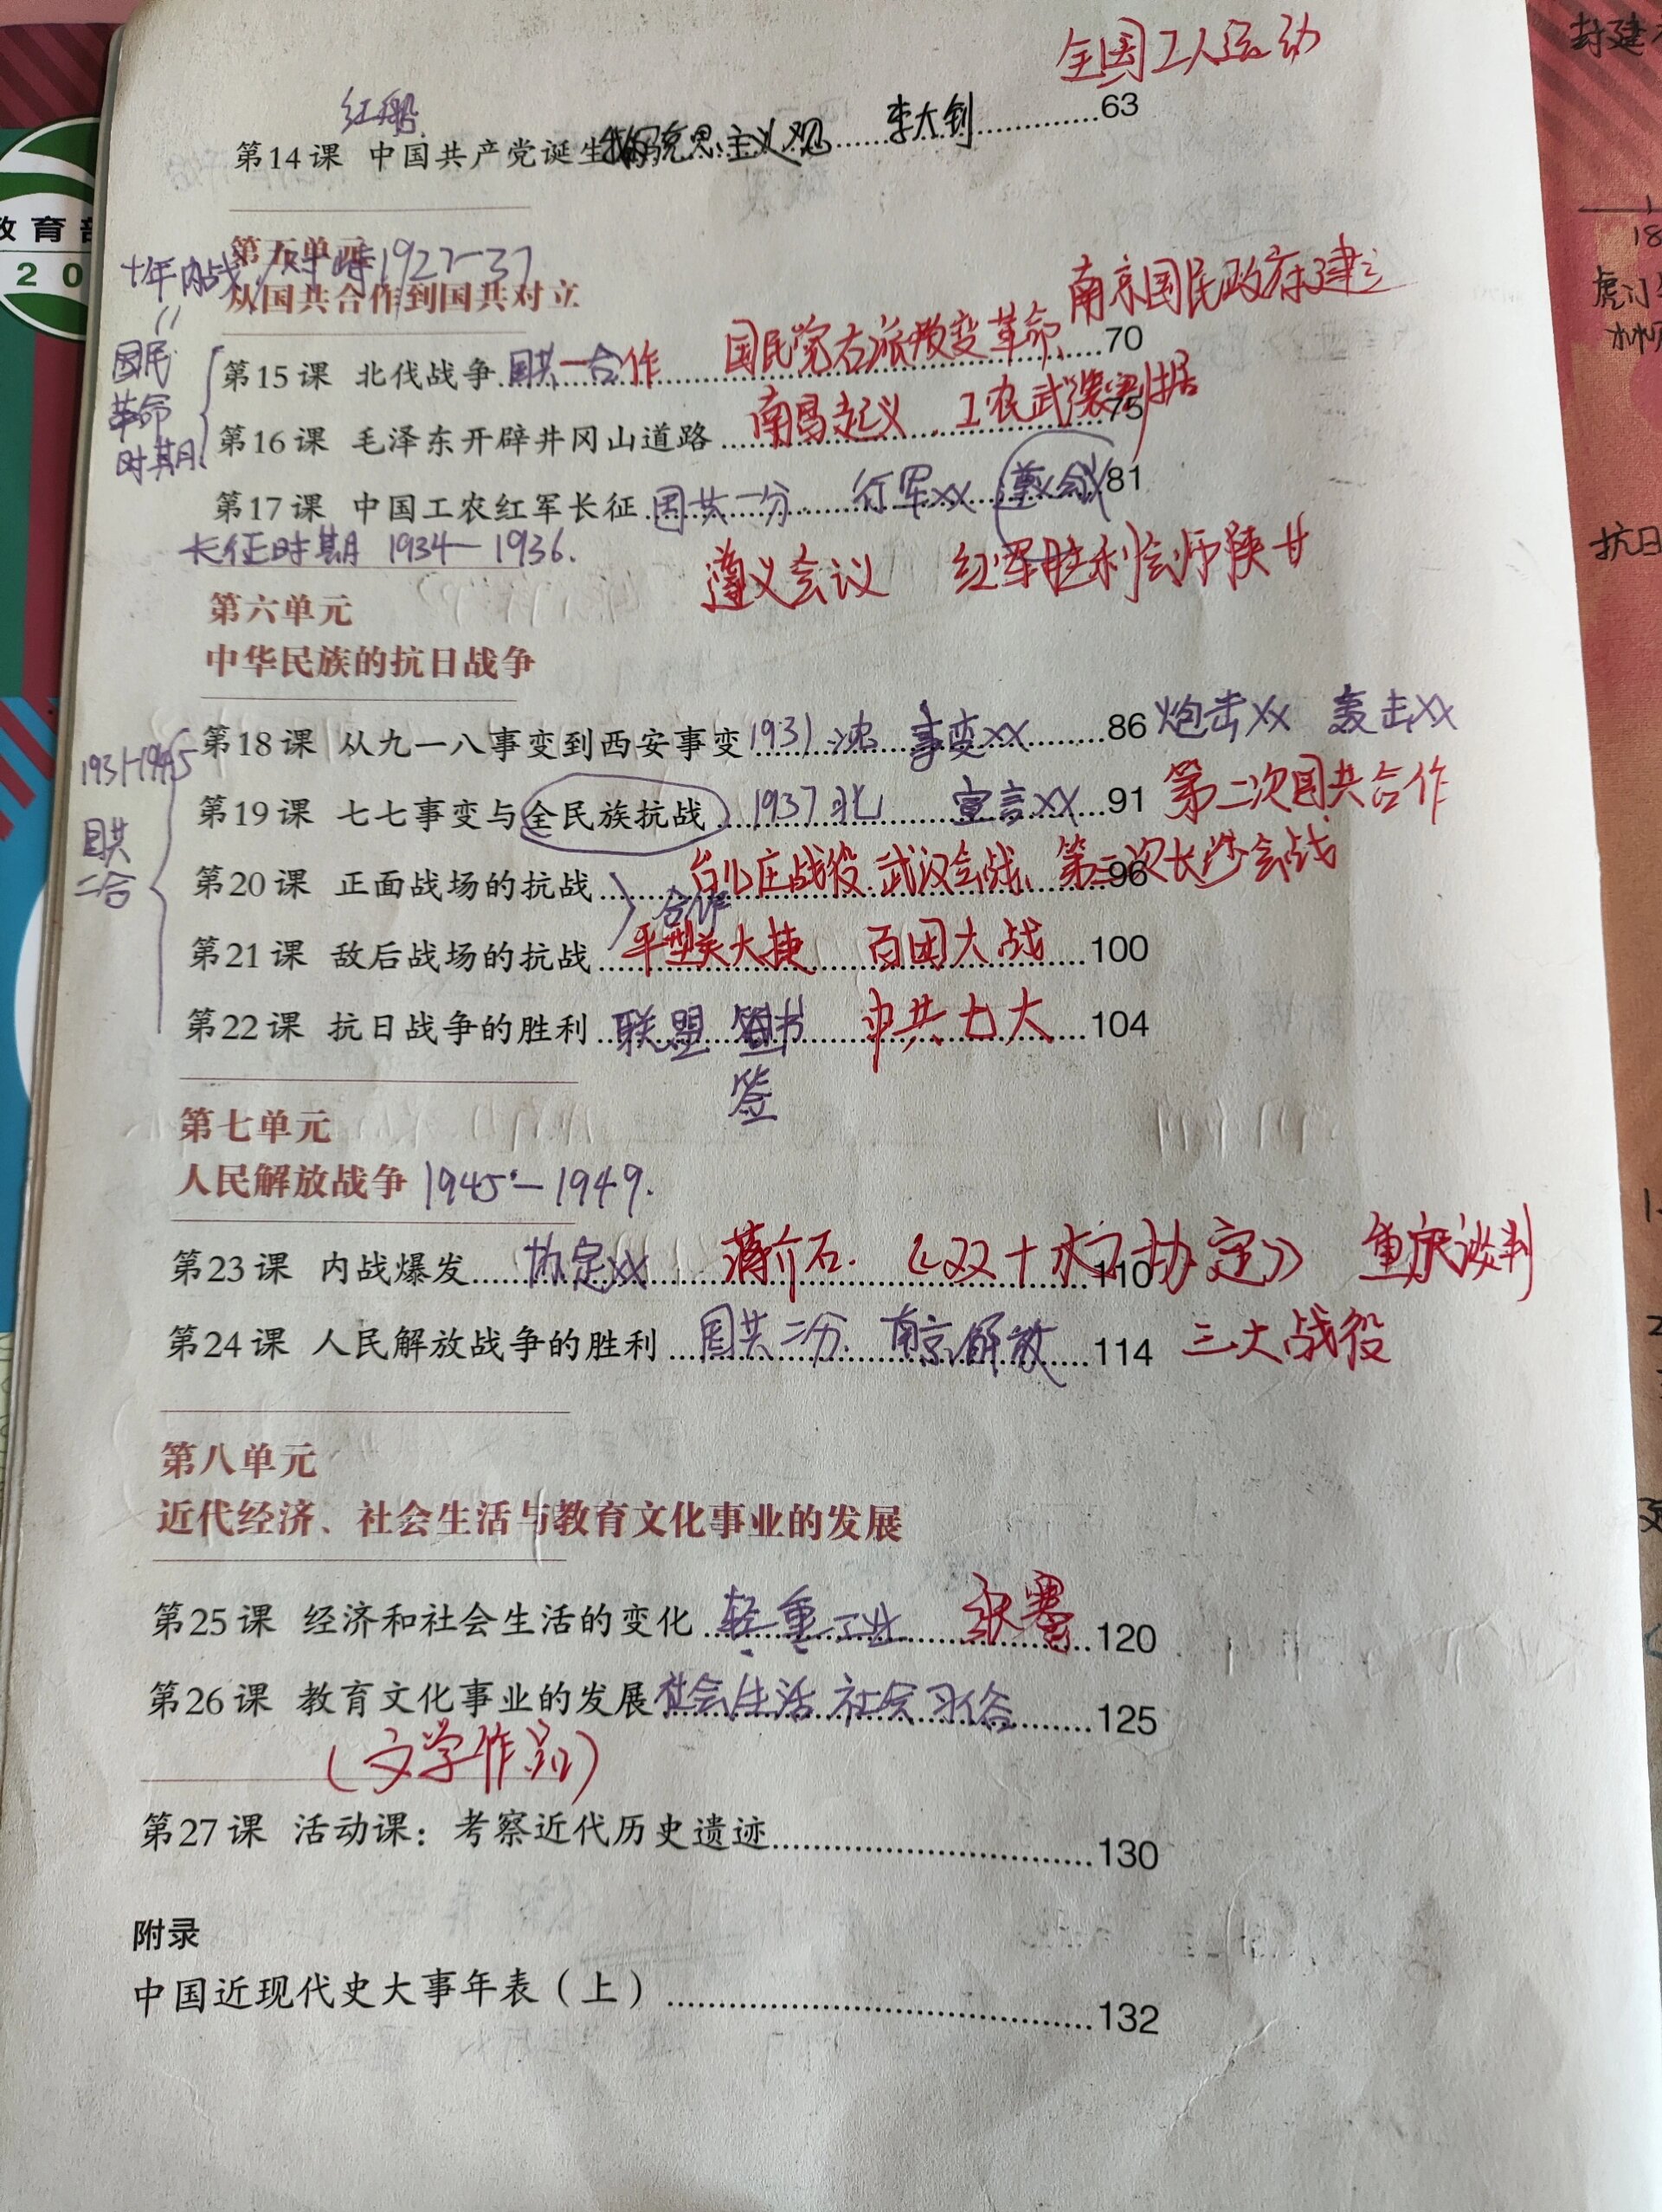 全国工人运动
封建
红船
第14课 中国共产党诞生 我的马克思主义观 李大钊 63
教育部
20
第五单元
十年内战/对峙1927-37
从国共合作到国共对立
南京国民政府建立
国民
革命
时期
第15课 北伐战争 国共一合作 国民党右派叛变革命 70
第16课 毛泽东开辟井冈山道路 南昌起义 工农武装割据 75
第17课 中国工农红军长征 国共一分 行军xx 遵义会议 81
长征时期 1934—1936.
遵义会议 红军胜利会师陕甘
抗日
第六单元
中华民族的抗日战争
1931-1945
国共
二合
第18课 从九一八事变到西安事变 1931 沈 事变xx 86 炮击xx 轰击xx
第19课 七七事变与全民族抗战 1937 北 宣言xx 91 第二次国共合作
第20课 正面战场的抗战 台儿庄战役 武汉会战、第三次长沙会战 96
合作
第21课 敌后战场的抗战 平型关大捷 百团大战 100
第22课 抗日战争的胜利 联盟 签书 中共七大 104
签
第七单元
人民解放战争 1945—1949.
第23课 内战爆发 协定xx 蒋介石. 《双十协定》 重庆谈判 110
第24课 人民解放战争的胜利 国共二分. 南京解放 114 三大战役
第八单元
近代经济、社会生活与教育文化事业的发展
第25课 经济和社会生活的变化 轻重工业 张謇 120
第26课 教育文化事业的发展 社会生活 社会习俗 125
(文学作品)
第27课 活动课：考察近代历史遗迹 130
附录
中国近现代史大事年表（上） 132